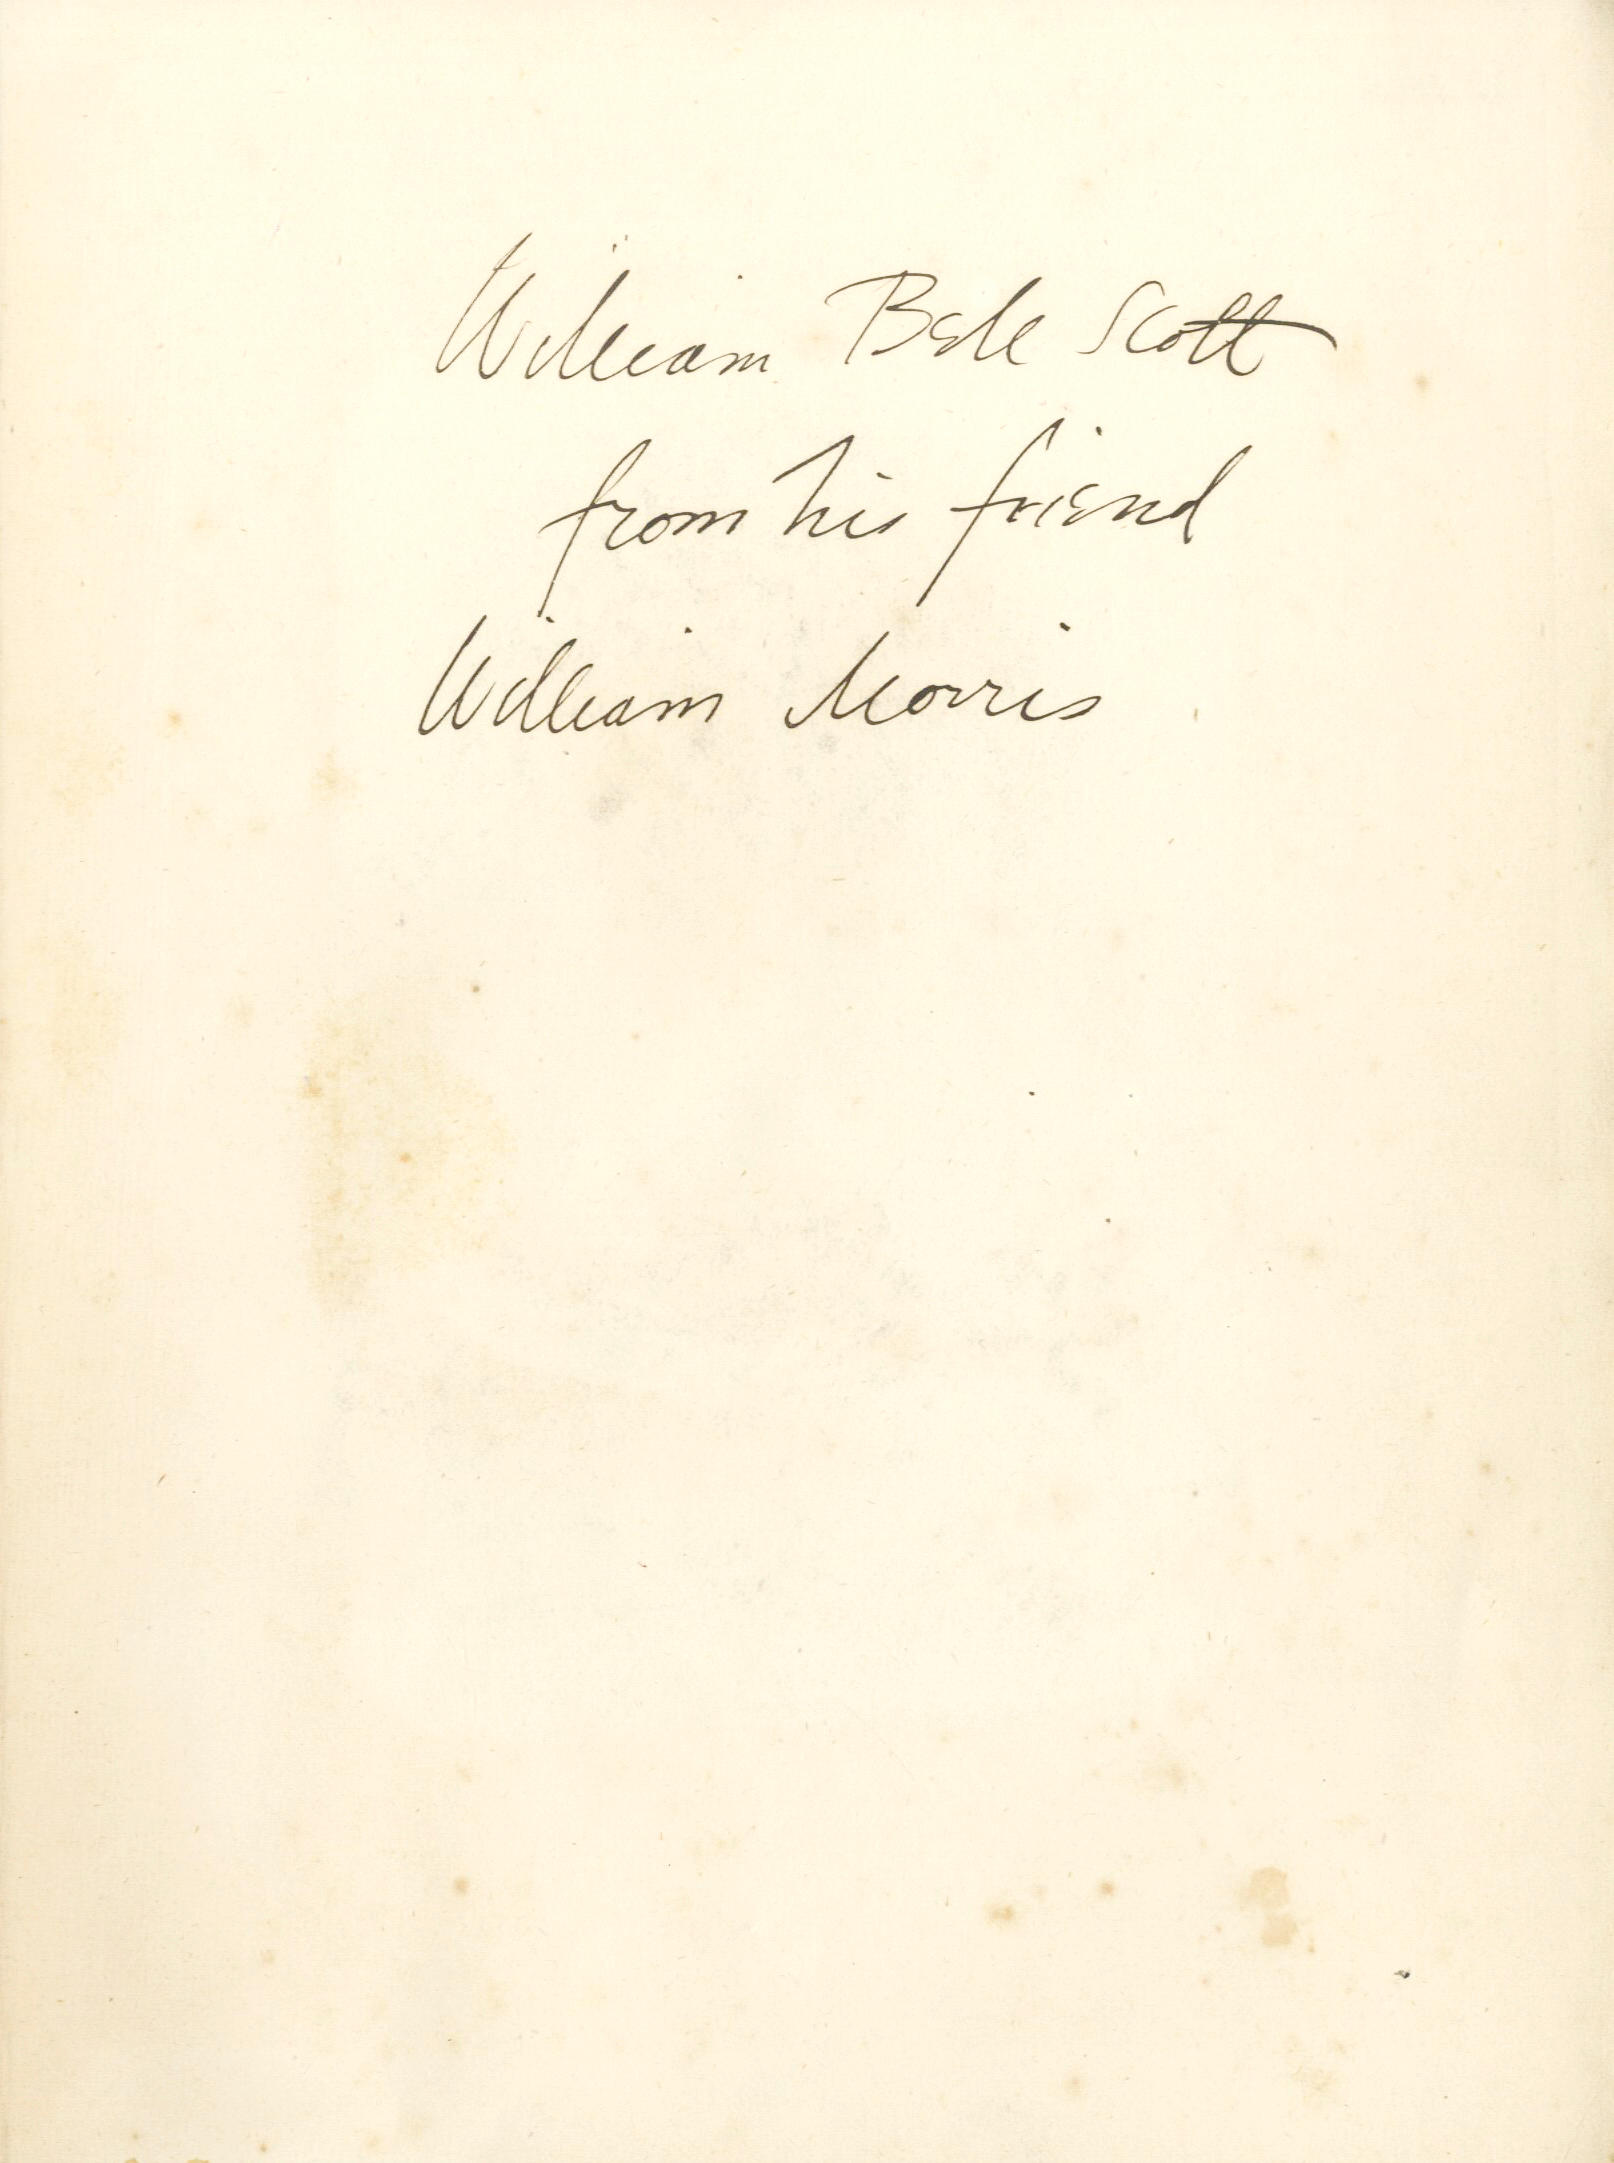 William Bell Scott
from his friend
William Morris